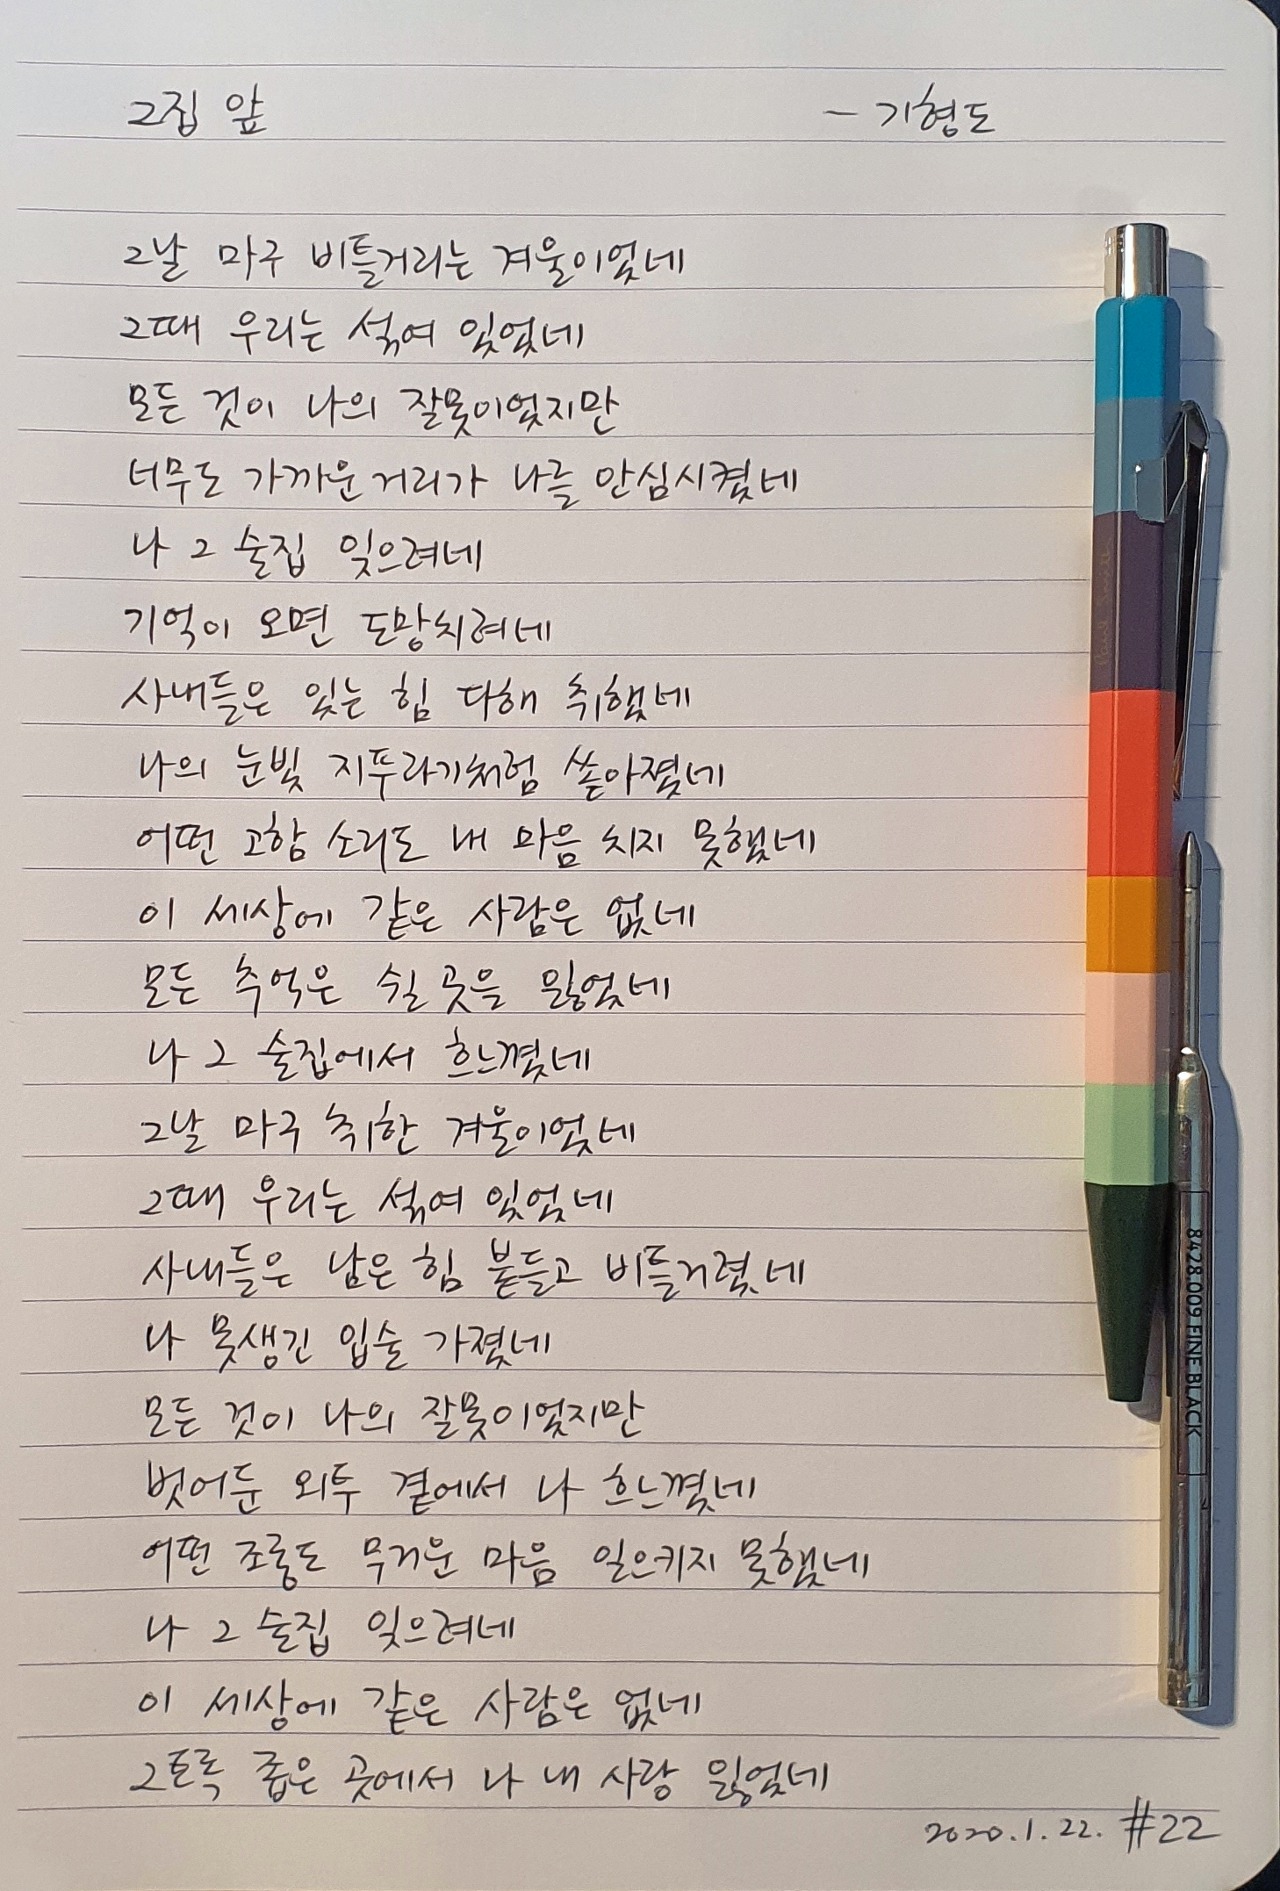 그집 앞 - 기형도
그날 마구 비틀거리는 겨울이었네
그때 우리는 섞여 있었네
모든 것이 나의 잘못이었지만
너무도 가까운 거리가 나를 안심시켰네
나 그 술집 잊으려네
기억이 오면 도망치려네
사내들은 있는 힘 다해 취했네
나의 눈빛 지푸라기처럼 쏟아졌네
어떤 고함 소리도 내 마음 치지 못했네
이 세상에 같은 사람은 없네
모든 추억은 쉴 곳을 잃었네
나 그 술집에서 흐느꼈네
그날 마구 취한 겨울이었네
그때 우리는 섞여 있었네
사내들은 남은 힘 붙들고 비틀거렸네
나 못생긴 입술 가졌네
모든 것이 나의 잘못이었지만
벗어둔 외투 곁에서 나 흐느꼈네
어떤 조롱도 무거운 마음 일으키지 못했네
나 그 술집 잊으려네
이 세상에 같은 사람은 없네
그토록 좁은 곳에서 나 내 사랑 잃었네
2020.1.22. #22
Paul Smith
8428.009 FINE BLACK